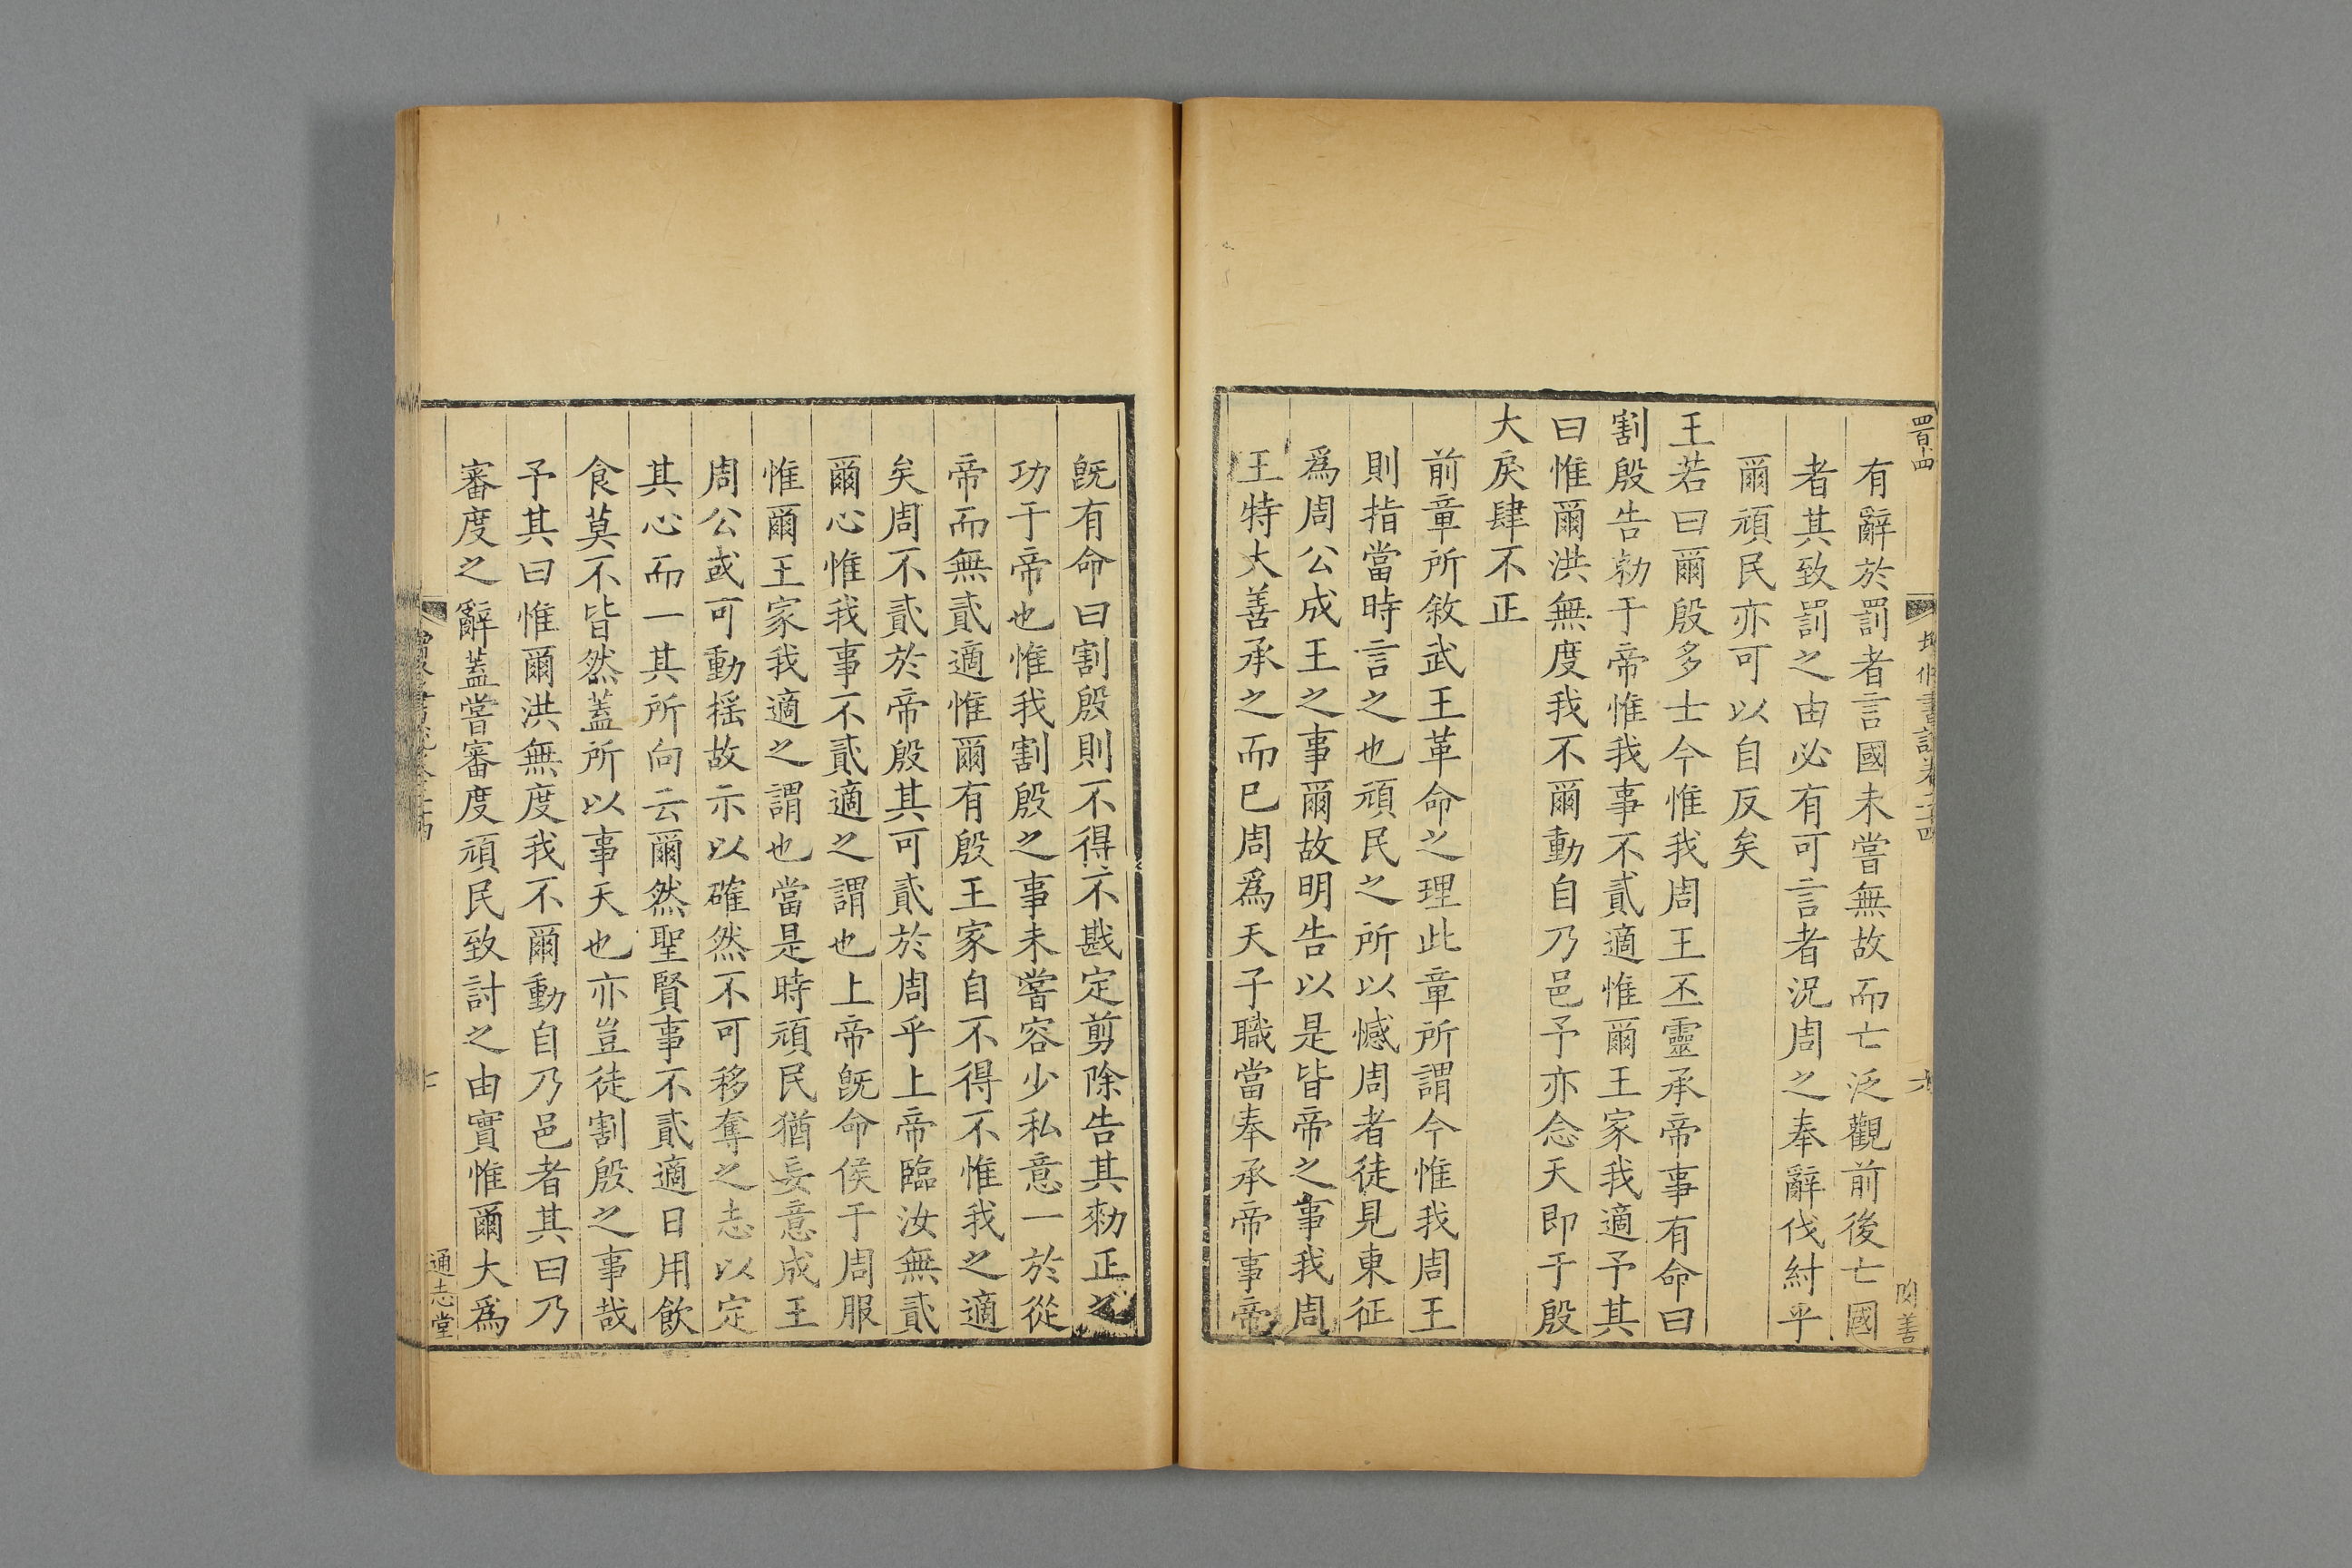 有辭於罰者言國未嘗無故而亡泛觀前後亡國
者其致罰之由必有可言者況周之奉辭伐紂乎
爾頑民亦可以自反矣
王若曰爾殷多士今惟我周王丕靈承帝事有命曰
割殷告勑于帝惟我事不貳適惟爾王家我適予其
曰惟爾洪無度我不爾動自乃邑予亦念天即于殷
大戾肆不正
前章所敘武王革命之理此章所謂今惟我周王
則指當時言之也頑民之所以憾周者徒見東征
爲周公成王之事爾故明告以是皆帝之事我周
王特大善承之而已周爲天子職當奉承帝事帝
既有命曰割殷則不得不戡定剪除告其勑正之
功于帝也惟我割殷之事未嘗容少私意一於從
帝而無貳適惟爾有殷王家自不得不惟我之適
矣周不貳於帝殷其可貳於周乎上帝臨汝無貳
爾心惟我事不貳適之謂也上帝既命侯于周服
惟爾王家我適之謂也當是時頑民猶妄意成王
周公或可動揺故示以確然不可移奪之志以定
其心而一其所向云爾然聖賢事不貳適日用飲
食莫不皆然蓋所以事天也亦豈徒割殷之事哉
予其曰惟爾洪無度我不爾動自乃邑者其曰乃
審度之辭蓋嘗審度頑民致討之由實惟爾大爲
通志堂